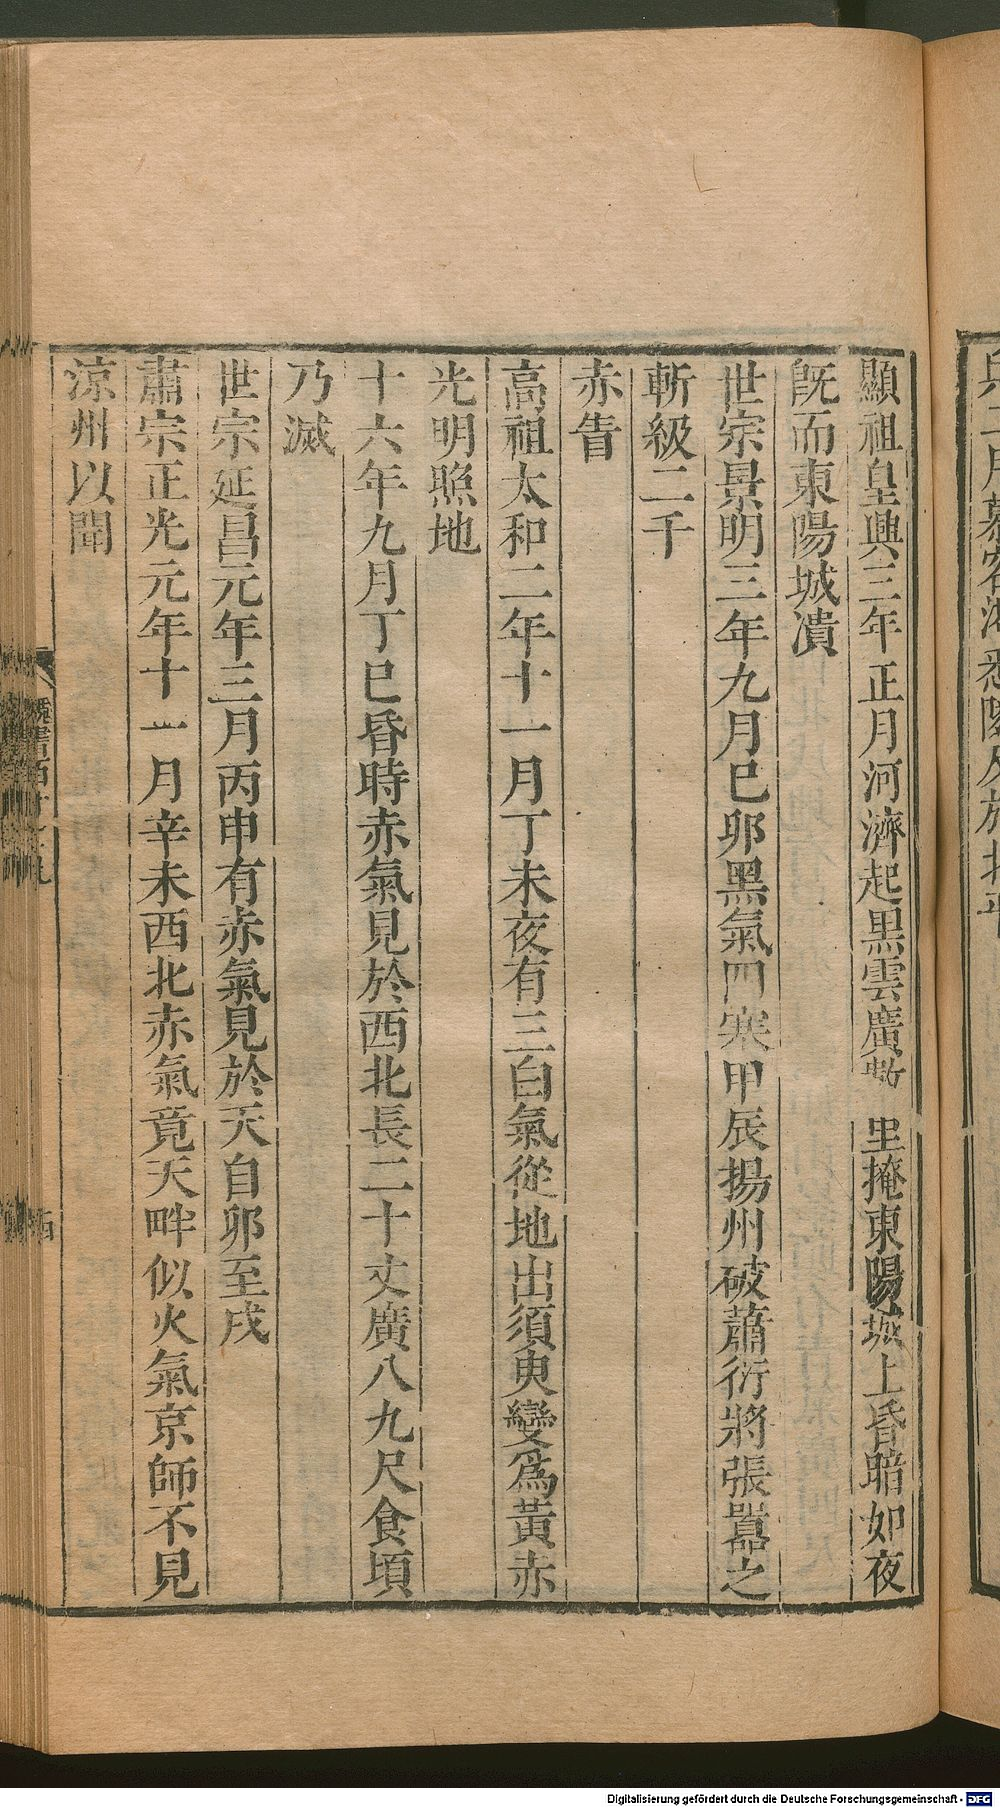 顯祖皇興三年正月河濟起黒雲廣數里掩東陽城上昏暗如夜
旣而東陽城潰
世宗景明三年九月己卯黑氣四塞甲辰揚州破蕭衍將張囂之
斬級二千
赤眚
高祖太和二年十一月丁未夜有三白氣從地出須臾變爲黃赤
光明照地
十六年九月丁巳昏時赤氣見於西北長二十丈廣八九尺食頃
乃滅
世宗延昌元年三月丙申有赤氣見於天自卯至戌
肅宗正光元年十一月辛未西北赤氣竟天畔似火氣京師不見
涼州以聞
Digitalisierung gefördert durch die Deutsche Forschungsgemeinschaft - DFG